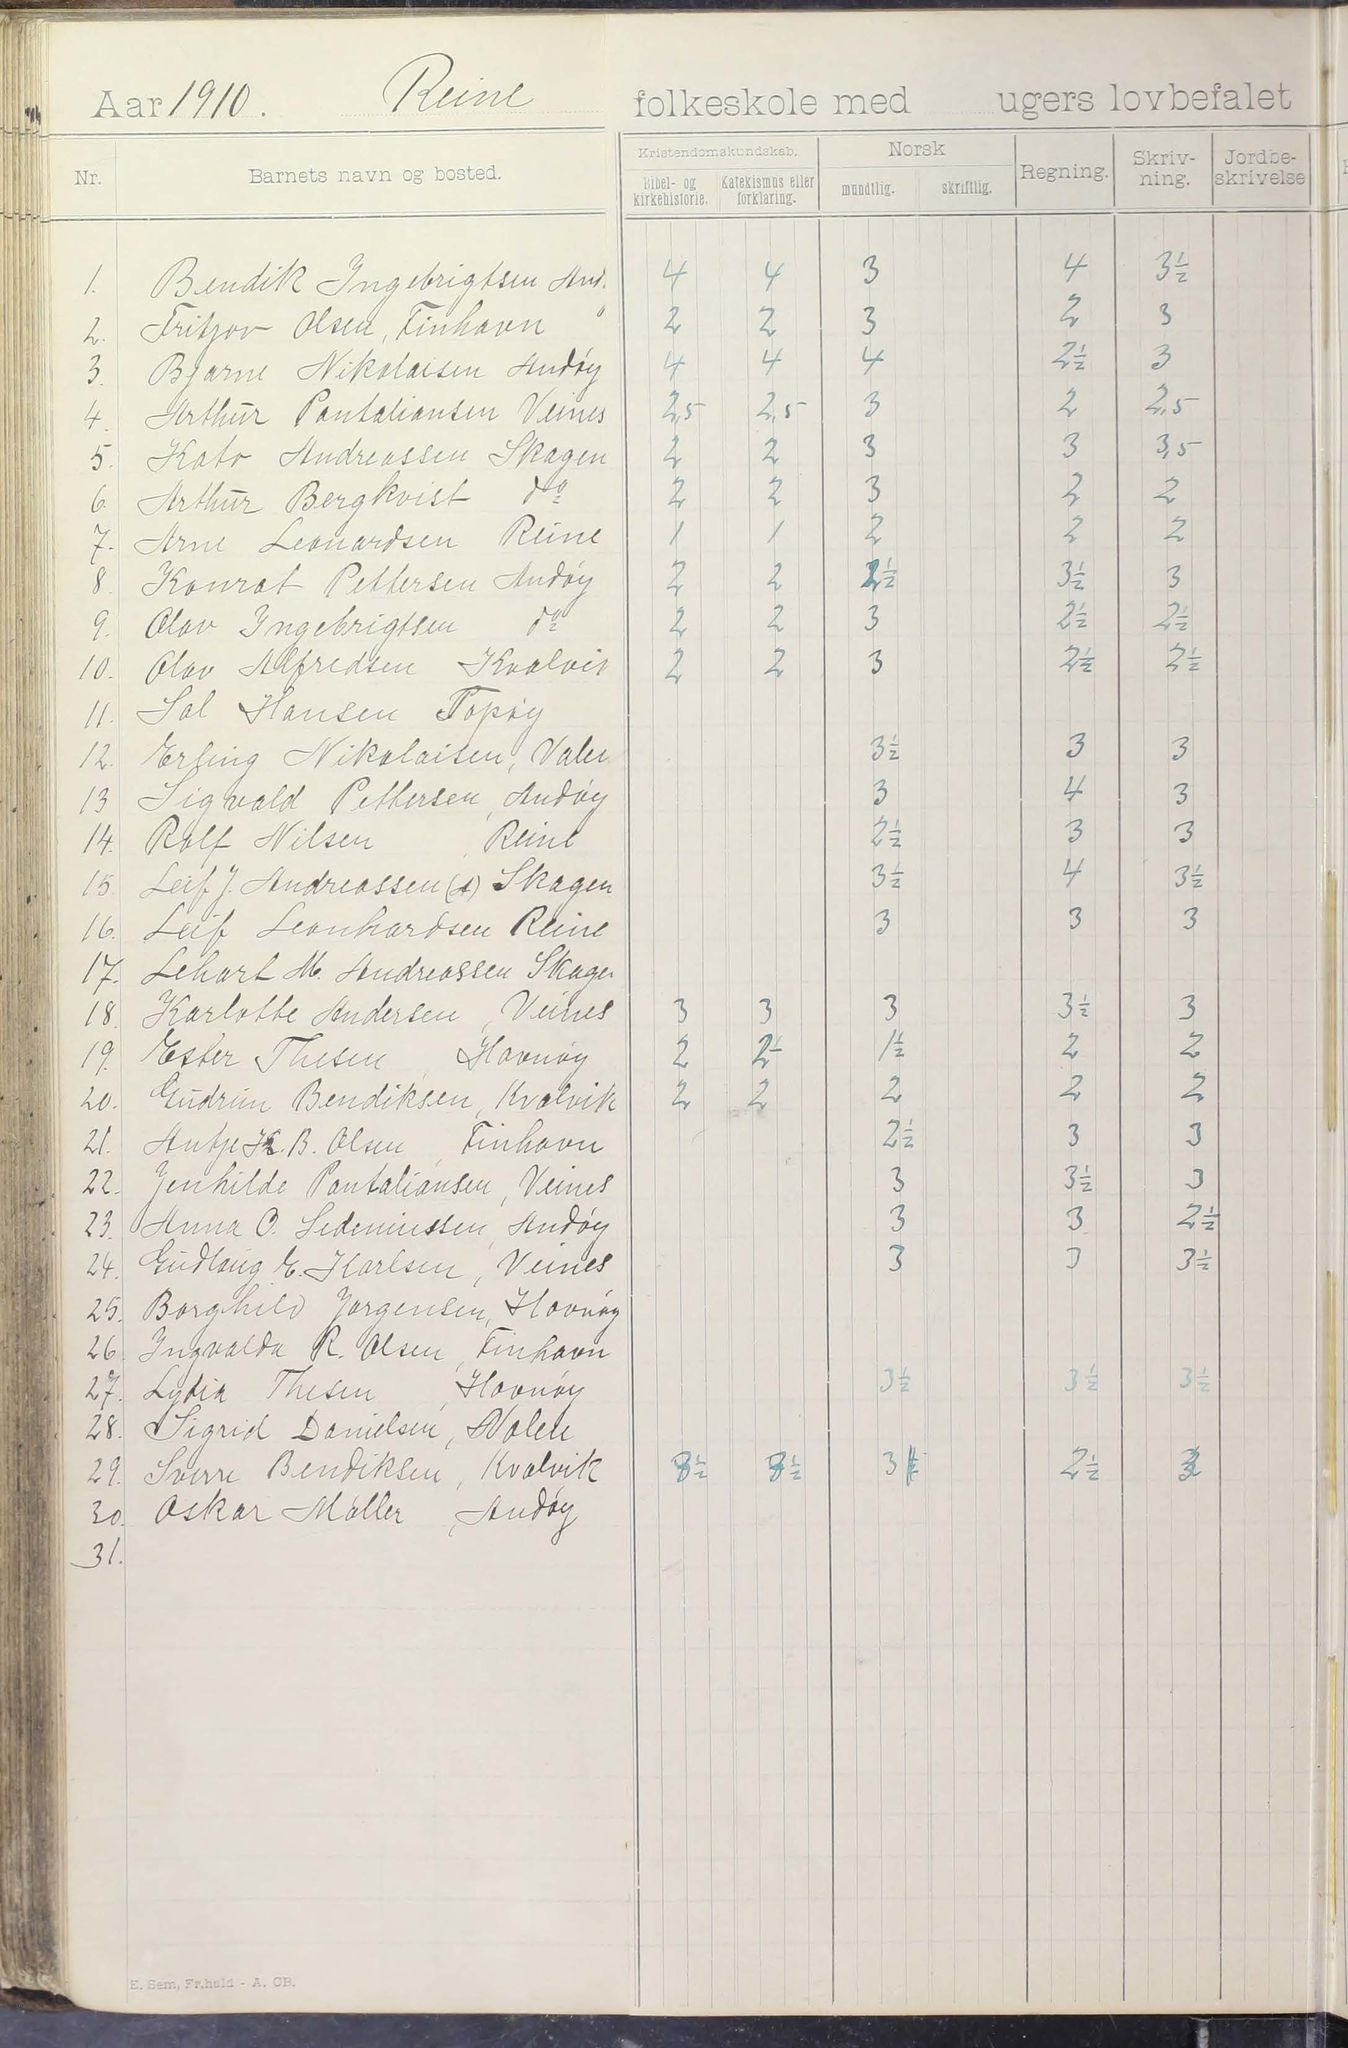 Aar 1910. Reine folkeskole med ugers lovbefalet
Nr. Barnets navn og bosted. Kristendomskundskab. Norsk Regning. Skriv-ning. Jordbe-skrivelse
Bibel- og kirkehistorie. Katekismus eller forklaring. mundtlig. skriftlig.
1. Bendik Ingebrigtsen And. 4 4 3 4 3½
2. Fritjov Olsen, Finhavn " 2 2 3 2 3
3. Bjarne Nikolaisen Andøy 4 4 4 2½ 3
4. Arthur Pantaliansen Veines 2,5 2,5 3 2 2,5
5. Kato Andreassen Skagen 2 2 3 3 3,5
6. Arthur Bergkvist do 2 2 3 2 2
7. Arne Leonardsen Reine 1 1 2 2 2
8. Konrat Pettersen Andøy 2 2 2½ 3½ 3
9. Olav Ingebrigtsen do 2 2 3 2½ 2½
10. Olav Alfredsen Kvalvik 2 2 3 2½ 2½
11. Sal Hansen Topøy
12. Erling Nikolaisen, Valen 3½ 3 3
13 Sigvald Pettersen, Andøy 3 4 3
14. Rolf Nilsen, Reine 2½ 3 3
15. Leif J. Andreassen (s) Skagen 3½ 4 3½
16. Leif Leonhardsen Reine 3 3 3
17. Lehart M. Andreassen Skagen
18. Karlotte Andersen, Veines 3 3 3 3½ 3
19. Ester Thesen, Havnøy 2 2½ 1½ 2 2
20. Gudrun Bendiksen, Kvalvik 2 2 2 2 2
21. Antje K. B. Olsen, Finhavn 2½ 3 3
22. Jenhilde Pantaliansen, Veines 3 3½ 3
23. Anna O. Sedeniussen, Andøy 3 3 2½
24. Gudlaug E. Karlsen, Veines 3 3 3½
25. Borghild Jørgensen, Havnøy
26. Ingvalda R. Olsen, Finhavn
27. Lydia Thesen, Havnøy 3½ 3½ 3½
28. Sigrid Danielsen, Valen
29. Sverre Bendiksen, Kvalvik 3½ 3½ 3½ 2½ 3
30. Oskar Møller, Andøy
31.
E. Sem, Fr.hald - A. OB.